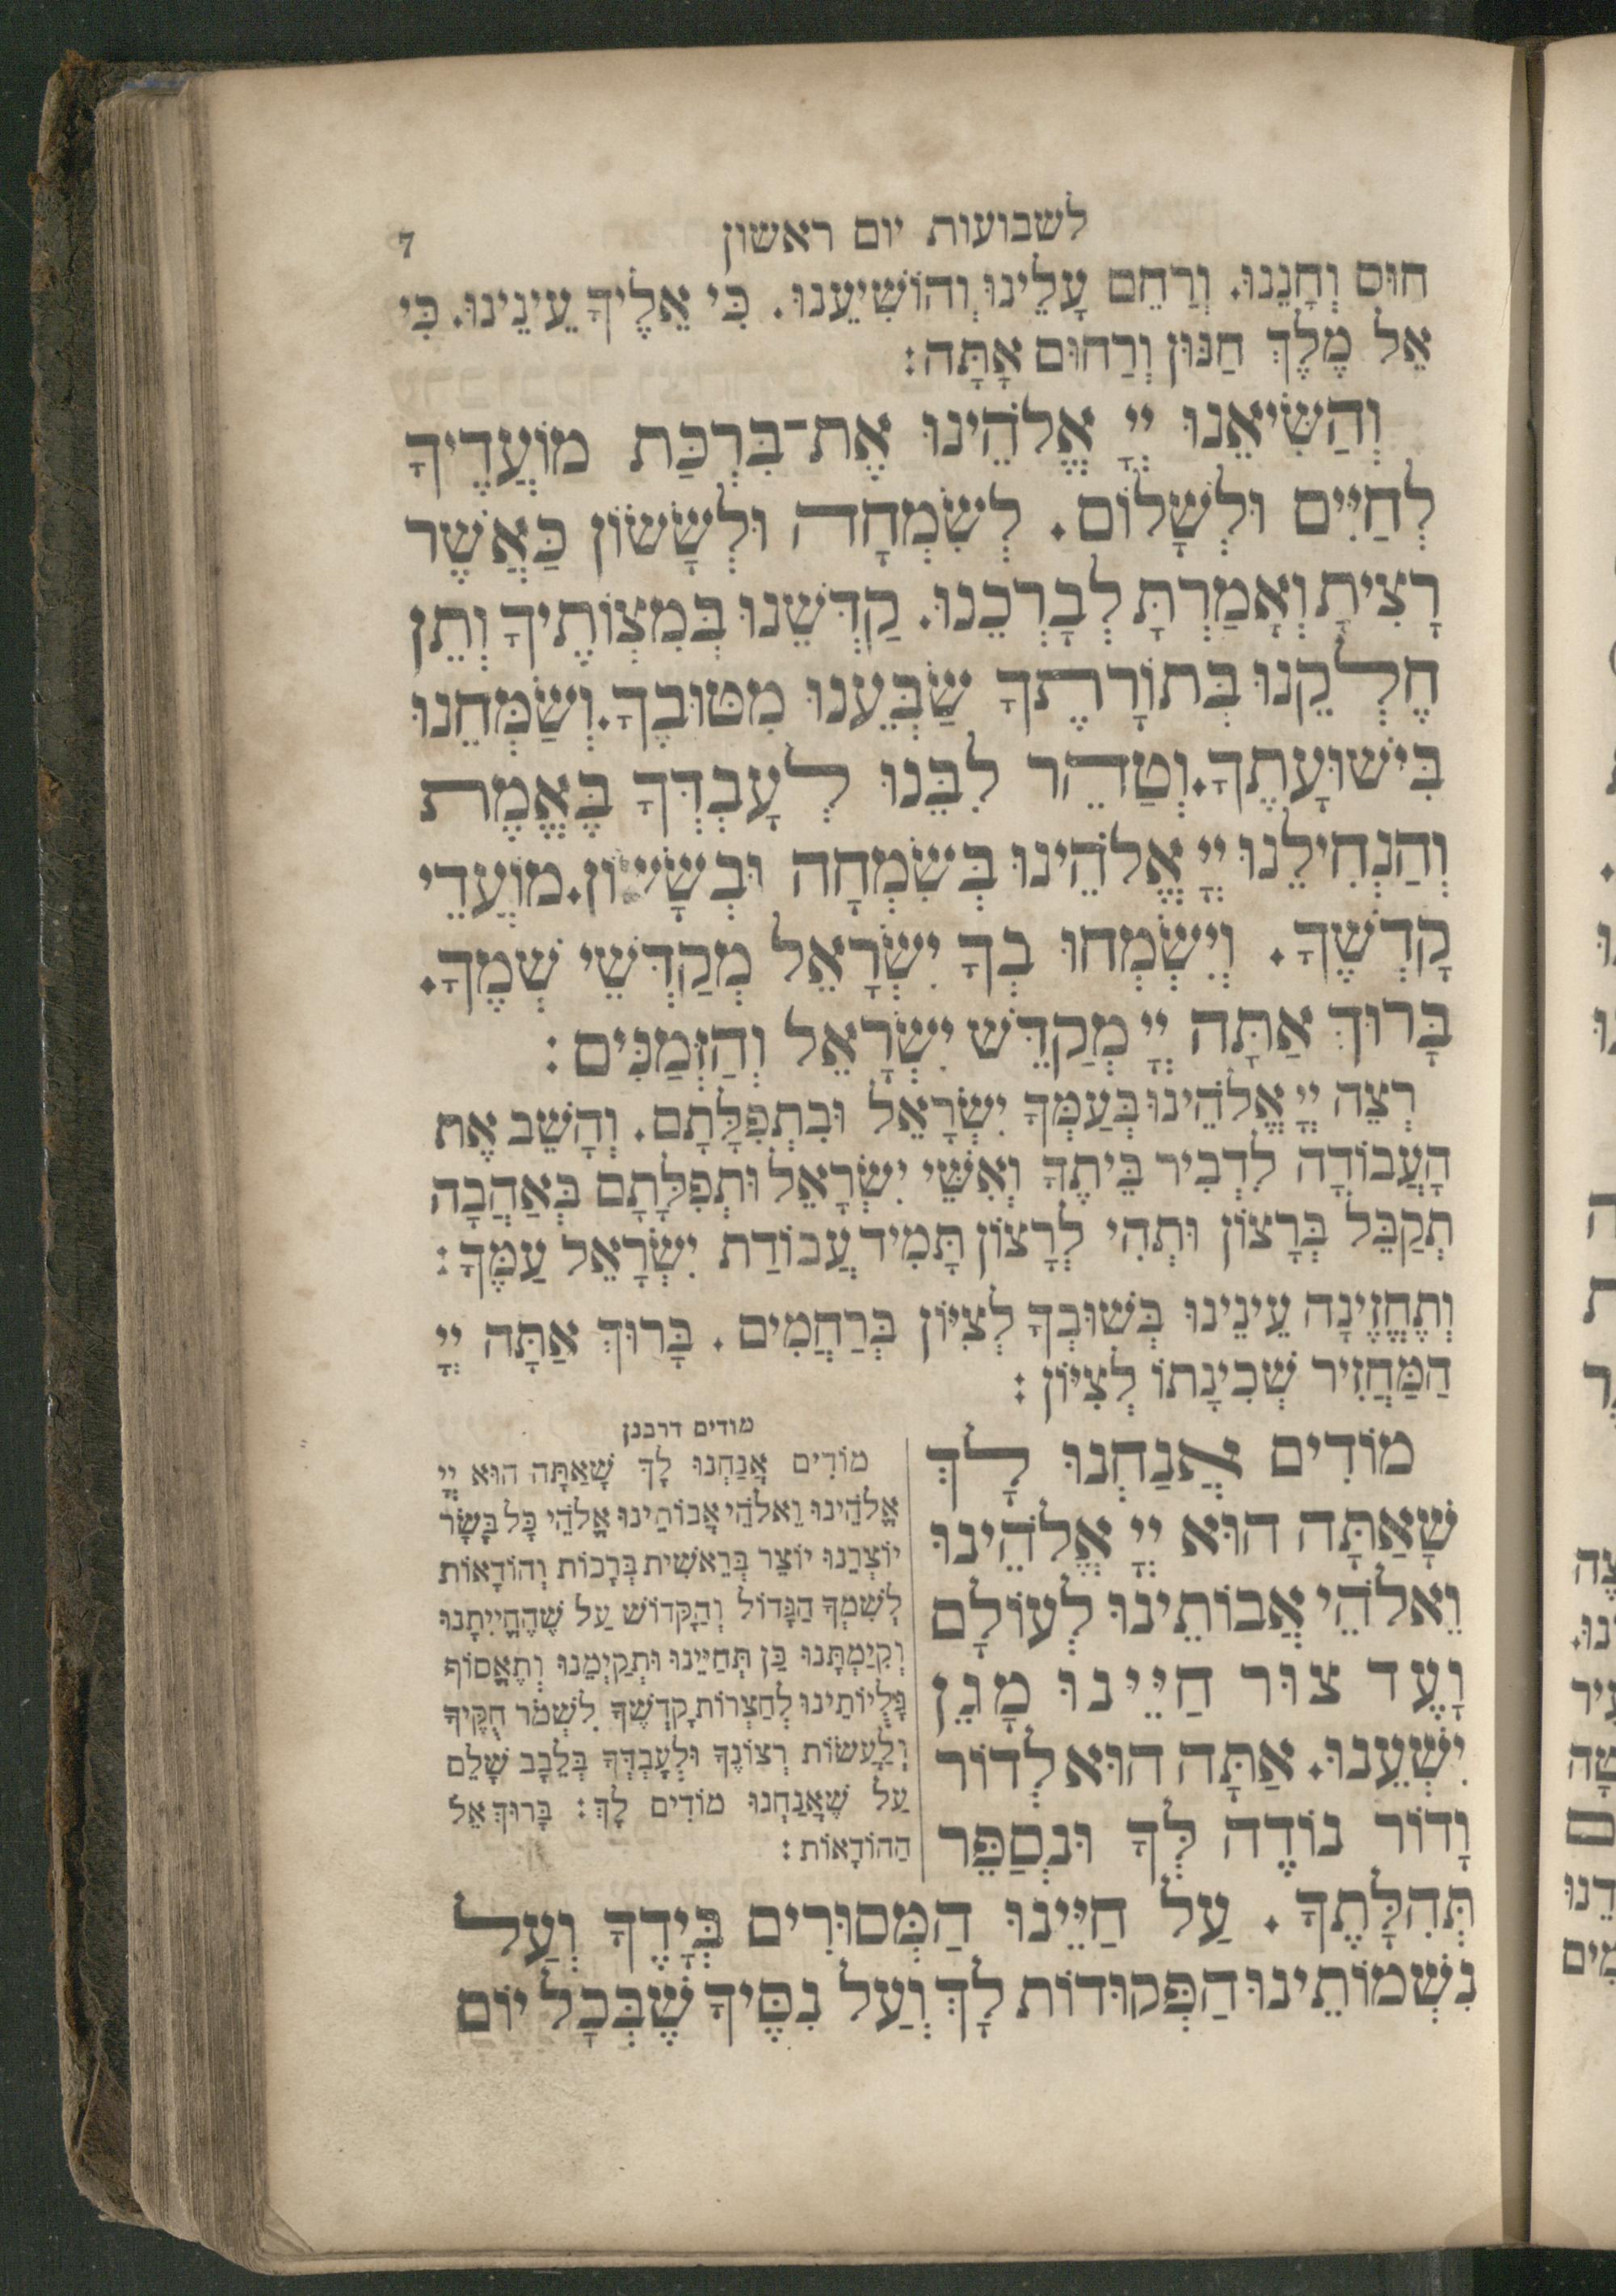 לשבועות יום ראשון 7
חוּם וְחָנֵנוּ. וְרַחֵם עָלֵינוּ וְהוֹשִׁיעֵנוּ. כִּי אֵלֶיךָ עֵינֵינוּ. כִּי
אֵל מֶלֶךְ חַנּוּן וְרַחוּם אָתָּה:
וְהַשִּׂיאֵנוּ יְיָ אֱלֹהֵינוּ אֶת־בִּרְכַּת מוֹעֲדֶיךָ
לְחַיִּים וּלְשָׁלוֹם. לְשִׂמְחָה וּלְשָׂשׂוֹן כַּאֲשֶׁר
רָצִיתָ וְאָמַרְתָּ לְבָרְכֵנוּ. קַדְּשֵׁנוּ בְּמִצְוֹתֶיךָ וְתֵן
חֶלְקֵנוּ בְּתוֹרָתֶךָ שַׂבְּעֵנוּ מִטּוּבֶךָ. וְשַׂמְּחֵנוּ
בִּישׁוּעָתֶךָ. וְטַהֵר לִבֵּנוּ לְעָבְדְּךָ בֶּאֱמֶת
וְהַנְחִילֵנוּ יְיָ אֱלֹהֵינוּ בְּשִׂמְחָה וּבְשָׂשׂוֹן. מוֹעֲדֵי
קָדְשֶׁךָ. וְיִשְׂמְחוּ בְךָ יִשְׂרָאֵל מְקַדְּשֵׁי שְׁמֶךָ.
בָּרוּךְ אַתָּה יְיָ מְקַדֵּשׁ יִשְׂרָאֵל וְהַזְּמַנִּים:
רְצֵה יְיָ אֱלֹהֵינוּ בְּעַמְּךָ יִשְׂרָאֵל וּבִתְפִלָּתָם. וְהָשֵׁב אֶת
הָעֲבוֹדָה לִדְבִיר בֵּיתֶךָ וְאִשֵּׁי יִשְׂרָאֵל וּתְפִלָּתָם בְּאַהֲבָה
תְקַבֵּל בְּרָצוֹן וּתְהִי לְרָצוֹן תָּמִיד עֲבוֹדַת יִשְׂרָאֵל עַמֶּךָ:
וְתֶחֱזֶינָה עֵינֵינוּ בְּשׁוּבְךָ לְצִיּוֹן בְּרַחֲמִים. בָּרוּךְ אַתָּה יְיָ
הַמַּחֲזִיר שְׁכִינָתוֹ לְצִיּוֹן:
מוֹדִים אֲנַחְנוּ לָךְ
שָׁאַתָּה הוּא יְיָ אֱלֹהֵינוּ
וֵאלֹהֵי אֲבוֹתֵינוּ לְעוֹלָם
וָעֶד צוּר חַיֵּינוּ מָגֵן
יִשְׁעֵנוּ. אַתָּה הוּא לְדוֹר
וָדוֹר נוֹדֶה לְּךָ וּנְסַפֵּר
מודים דרבנן
מוֹדִים אֲנַחְנוּ לָךְ שָׁאַתָּה הוּא יְיָ
אֱלֹהֵינוּ וֵאלֹהֵי אֲבוֹתֵינוּ אֱלֹהֵי כָּל בָּשָׂר
יוֹצְרֵנוּ יוֹצֵר בְּרֵאשִׁית בְּרָכוֹת וְהוֹדָאוֹת
לְשִׁמְךָ הַגָּדוֹל וְהַקָּדוֹשׁ עַל שֶׁהֶחֱיִיתָנוּ
וְקִיַּמְתָּנוּ כֵּן תְּחַיֵּינוּ וּתְקַיְּמֵנוּ וְתֶאֱסוֹף
גָּלֻיּוֹתֵינוּ לְחַצְרוֹת קָדְשֶׁךָ לִשְׁמֹר חֻקֶּיךָ
וְלַעֲשׂוֹת רְצוֹנֶךָ וּלְעָבְדְּךָ בְּלֵבָב שָׁלֵם
עַל שֶׁאֲנַחְנוּ מוֹדִים לָךְ: בָּרוּךְ אֵל
הַהוֹדָאוֹת:
תְּהִלָּתֶךָ. עַל חַיֵּינוּ הַמְּסוּרִים בְּיָדֶךָ וְעַל
נִשְׁמוֹתֵינוּ הַפְּקוּדוֹת לָךְ וְעַל נִסֶּיךָ שֶׁבְּכָל יוֹם